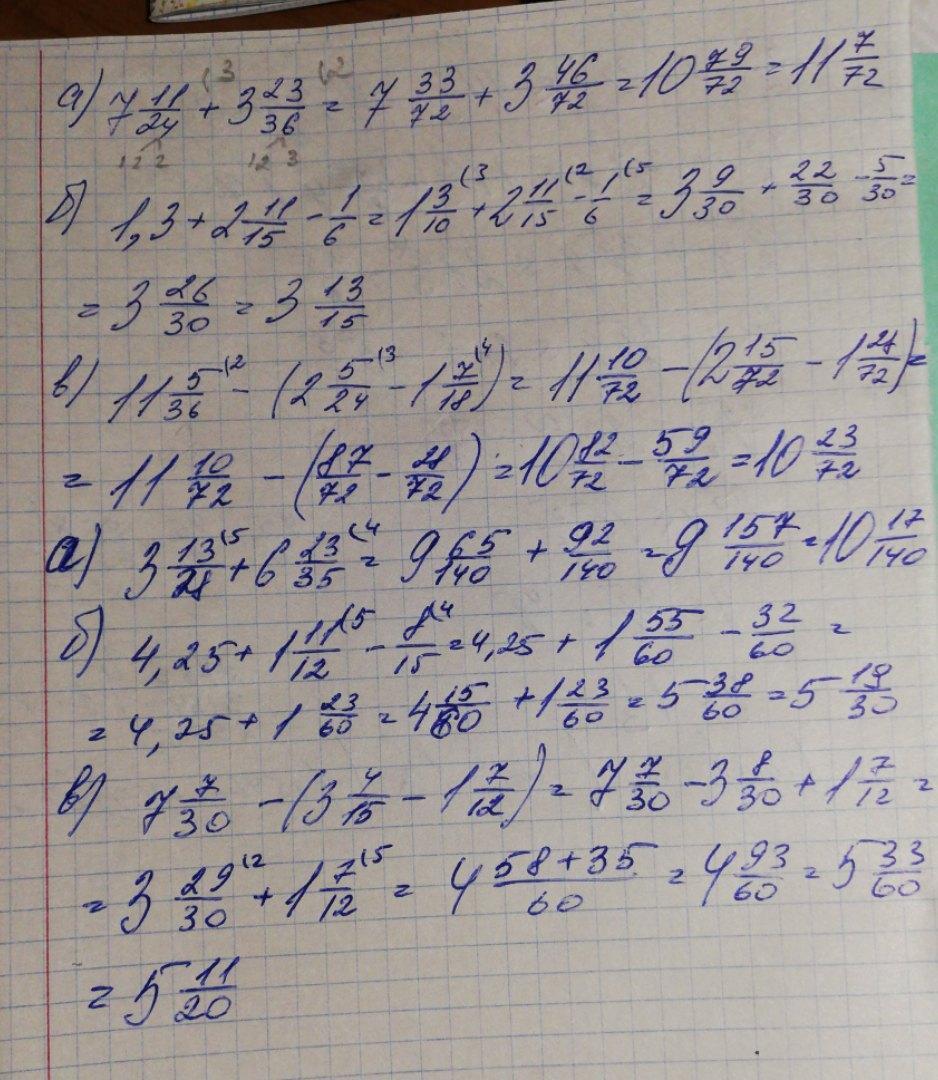 а) 7 11/24 (3 + 3 23/36 (2 = 7 33/72 + 3 46/72 = 10 79/72 = 11 7/72
12 2 12 3
б) 1,3 + 2 11/15 - 1/6 = 1 3/10 (3 + 2 11/15 (2 - 1/6 (5 = 3 9/30 + 22/30 - 5/30 =
= 3 26/30 = 3 13/15
в) 11 5/36 (2 - (2 5/24 (3 - 1 7/18 (4) = 11 10/72 - (2 15/72 - 1 28/72) =
= 11 10/72 - (87/72 - 28/72) = 10 82/72 - 59/72 = 10 23/72
а) 3 13/28 (5 + 6 23/35 (4 = 9 65/140 + 92/140 = 9 157/140 = 10 17/140
б) 4,25 + 1 11/12 (5 - 8/15 (4 = 4,25 + 1 55/60 - 32/60 =
= 4,25 + 1 23/60 = 4 15/60 + 1 23/60 = 5 38/60 = 5 19/30
в) 7 7/30 - (3 4/15 - 1 7/12) = 7 7/30 - 3 8/30 + 1 7/12 =
= 3 29/30 (2 + 1 7/12 (5 = 4 58+35/60 = 4 93/60 = 5 33/60
= 5 11/20